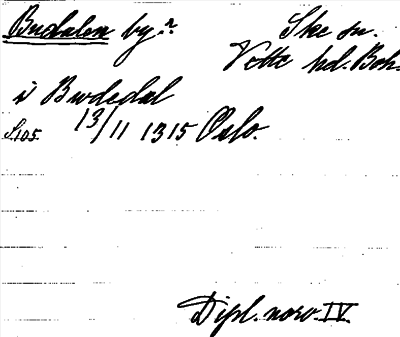 Budalen by.n
Ske sn.
Vette hd. Boh.
i Budedal
S.105. 13/11 1315 Oslo.
Dipl. norv. IV.